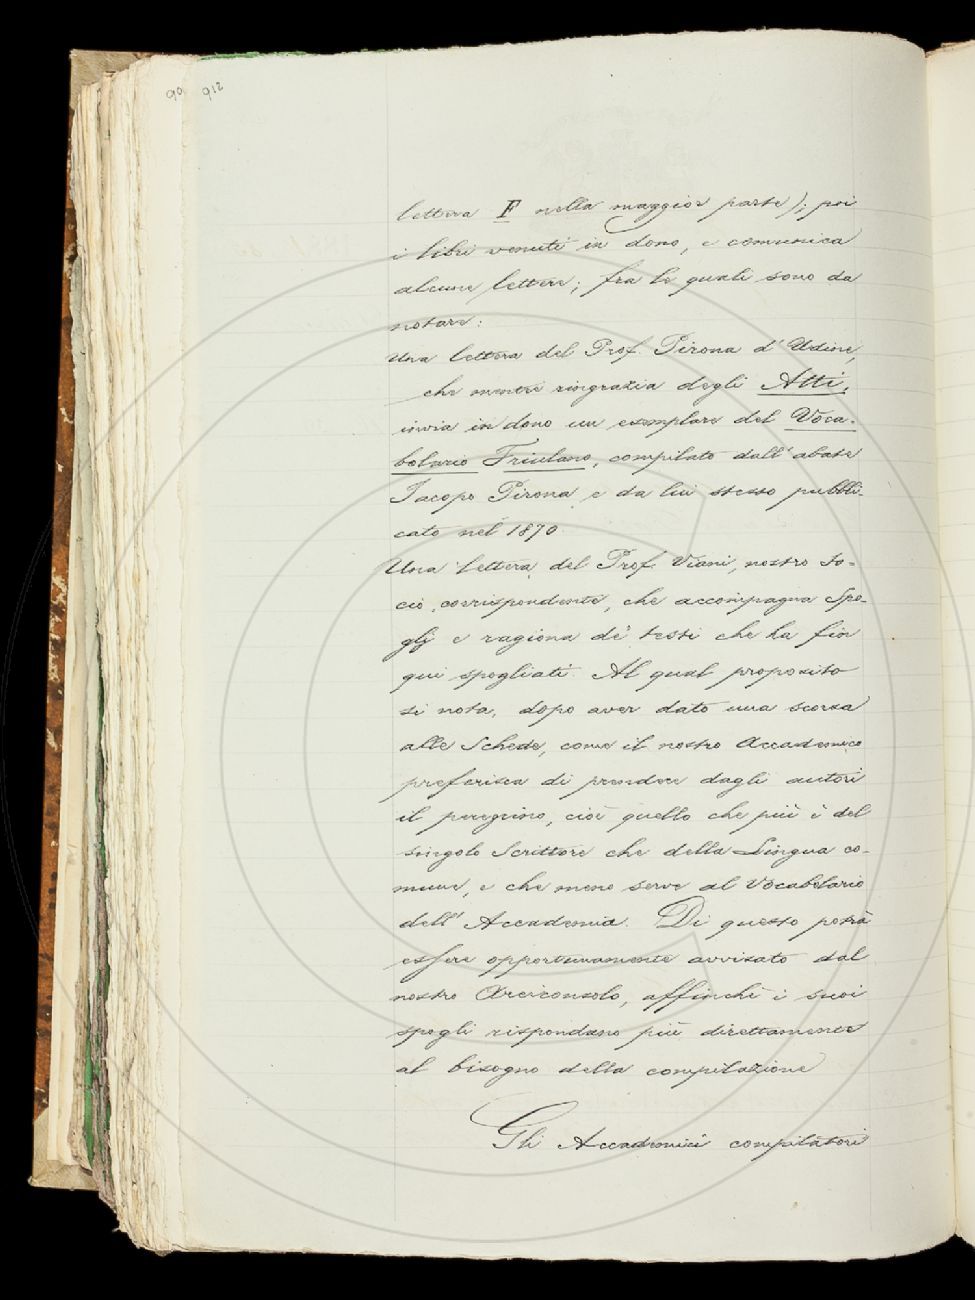 90 912
lettera F nella maggior parte); poi
i libri venuti in dono, e comunica
alcune lettere; fra le quali sono da
notare:
Una lettera del Prof. Pirona d'Udine,
che mentre ringrazia degli Atti,
invia in dono un esemplare del Voca-
bolario Friulano, compilato dall'abate
Jacopo Pirona e da lui stesso pubbli-
cato nel 1870.
Una lettera del Prof. Viani, nostro So-
cio corrispondente, che accompagna Spo-
glj e ragiona de' testi che ha fin
qui spogliati. Al qual proposito
si nota, dopo aver dato una scorsa
alle Schede, come il nostro Accademico
preferisca di prendere dagli autori
il peregrino, cioè quello che più è del
singolo Scrittore che della Lingua co-
mune, e che meno serve al Vocabolario
dell'Accademia. Di questo potrà
essere opportunamente avvisato dal
nostro Arciconsolo, affinchè i suoi
spogli rispondano più direttamente
al bisogno della compilazione
Gli Accademici compilatori